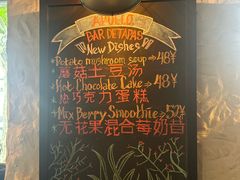 APOLLO
BAR DE TAPAS
New Dishes
Potato mushroom soup → 48¥
蘑菇土豆汤
Hot Chocolate Cake → 48¥
热巧克力蛋糕
Mix Berry Smoothie → 52¥
无花果混合莓奶昔